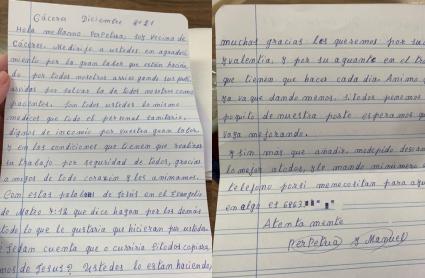 Cáceres Diciembre
Hola mellamo Perpetua, soy vecina de
Cáceres. Medirijo a ustedes en agradeci
miento por la gran labor que están hacien
do por todos nosotros arriesgando sus
vidas por salvar la de todos nosotros como
pacientes. Son todos ustedes lo mismo
medicos que todo el personal sanitario,
dignos de por vuestra gran labor
y en las condiciones que tienen que realizar
su trabajo por seguridad de todos, gracias
amigos de todo corazón y los animamos.
Con estas palabras de Jesús en el Evangelio
de Mateo 7:12 que dice hagan por los demás
todo lo que le gustaria que hicieran por ustedes.
Sedan cuenta que ocurriria sitodos copiara
mos de Jesús? Ustedes lo están haciendo,
muchas gracias los queremos por su
valentia, y por su aguante en el tra
que tienen que hacer cada dia. Animo
ya va que dando menos. Sitodos ponemos
poquito de nuestra parte esperamos que
vaya mejorando.
y sin mas que añadir, medepido
lo mejor atodos, y le mando minúmero
telefono porsi menecesitan para
en algo es 6863
Atenta mente
Perpetua y Manuel